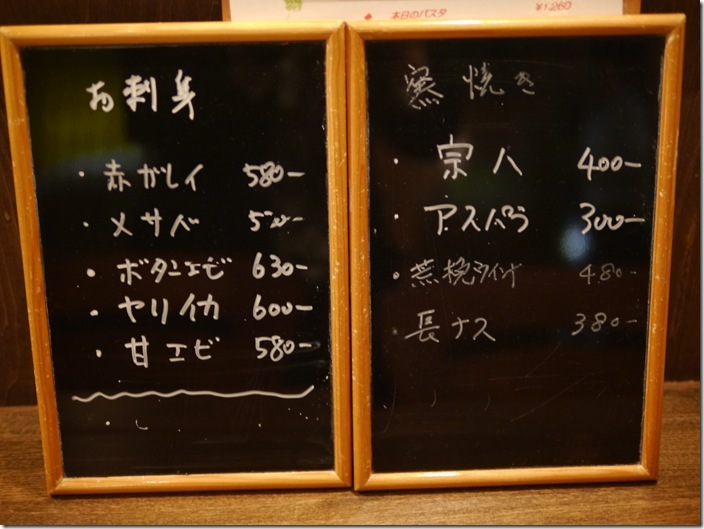 ♦ 本日のパスタ ¥1,260
お刺身
・赤ガレイ 580-
・〆サバ 500-
・ボタンエビ 630-
・ヤリイカ 600-
・甘エビ 580-
窯焼き
・宗八 400-
・アスパラ 300-
・ 480-
・長ナス 380-